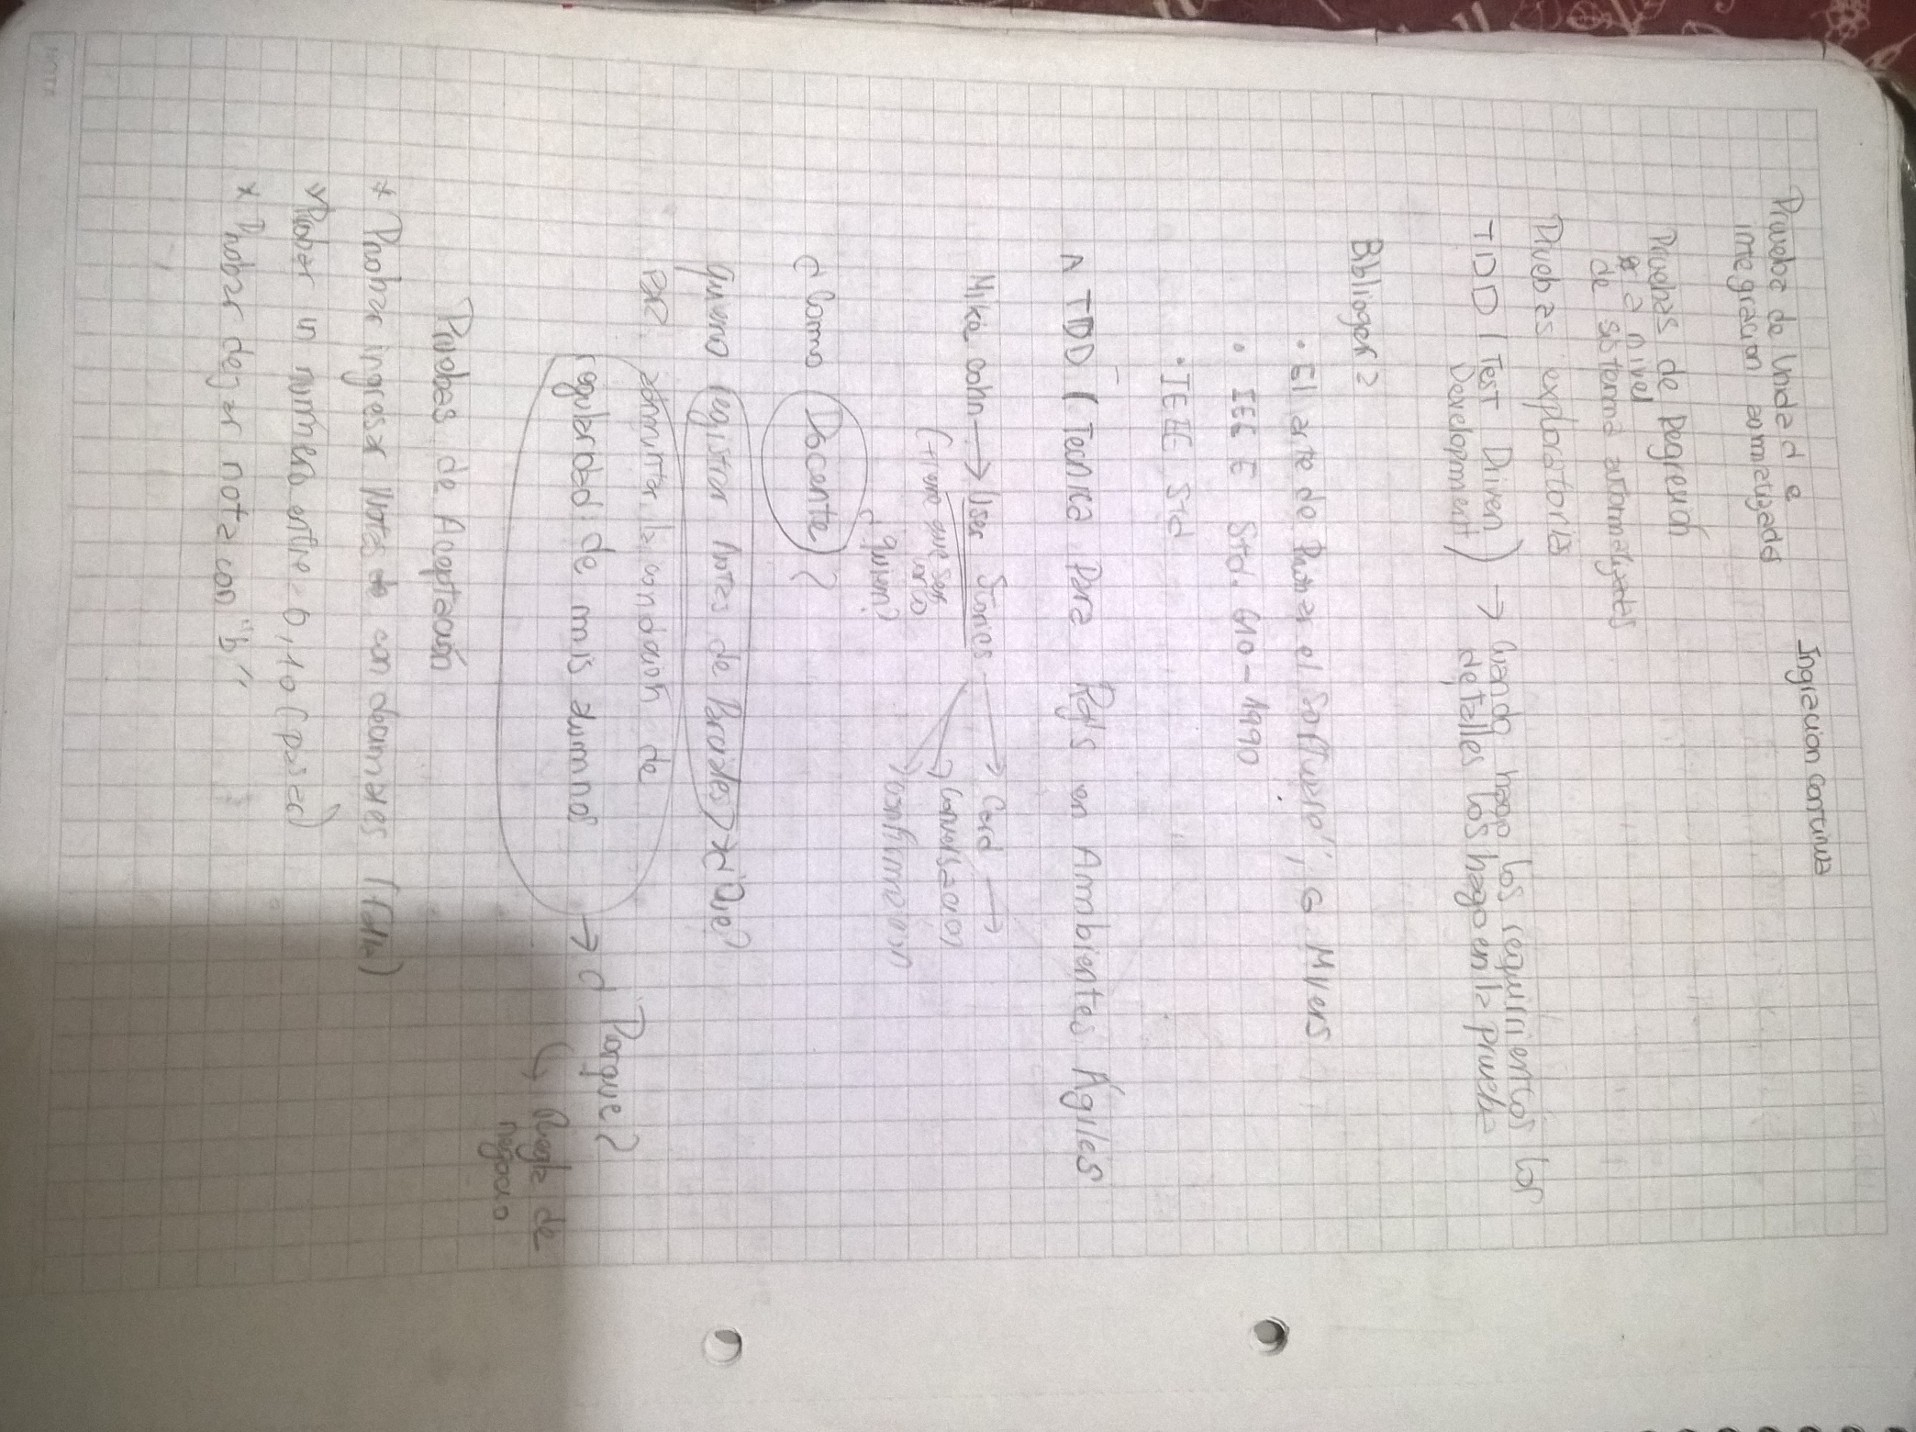 Prueba de Unidad e
integracion
Ingracion Continua
Pruebas de Regresión
a nivel
de sistema automatizadas
Pruebas exploratorias
TDD (Test Driven
Development) → Cuando hago los requirrientos los
detalles los hago en la prueba
Bibliogar?
• El arte de Probar el Software", G Myers
• IEEE Std. 610-1990
• IEEE Std
A TDD ( Tecnica Para Rq's en Ambientes Ágiles
Mike Cohn → User Stories → Card →
conversacion
(tiene que ser
confirmacion
¿quien?
¿ Como Docente ?
quiero registrar Notas de Parciales → ¿Que?
la condicion de
regularidad de mis alumnos → ¿ Porque?
↳ Regla de
negocio
Pruebas de Aceptación
* Probar ingresar Notas con (falla)
* Probar un numero entre 0,10 (pasar)
* Probar dejar nota con "b"
NOTA